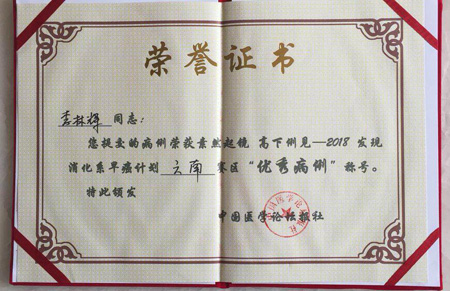 荣誉证书
李林辉 同志:
您提交的病例荣获素然起镜 高下例见—2018 发现
消化系早癌计划 云南 赛区“优秀病例”称号。
特此颁发
中国医学论坛报社